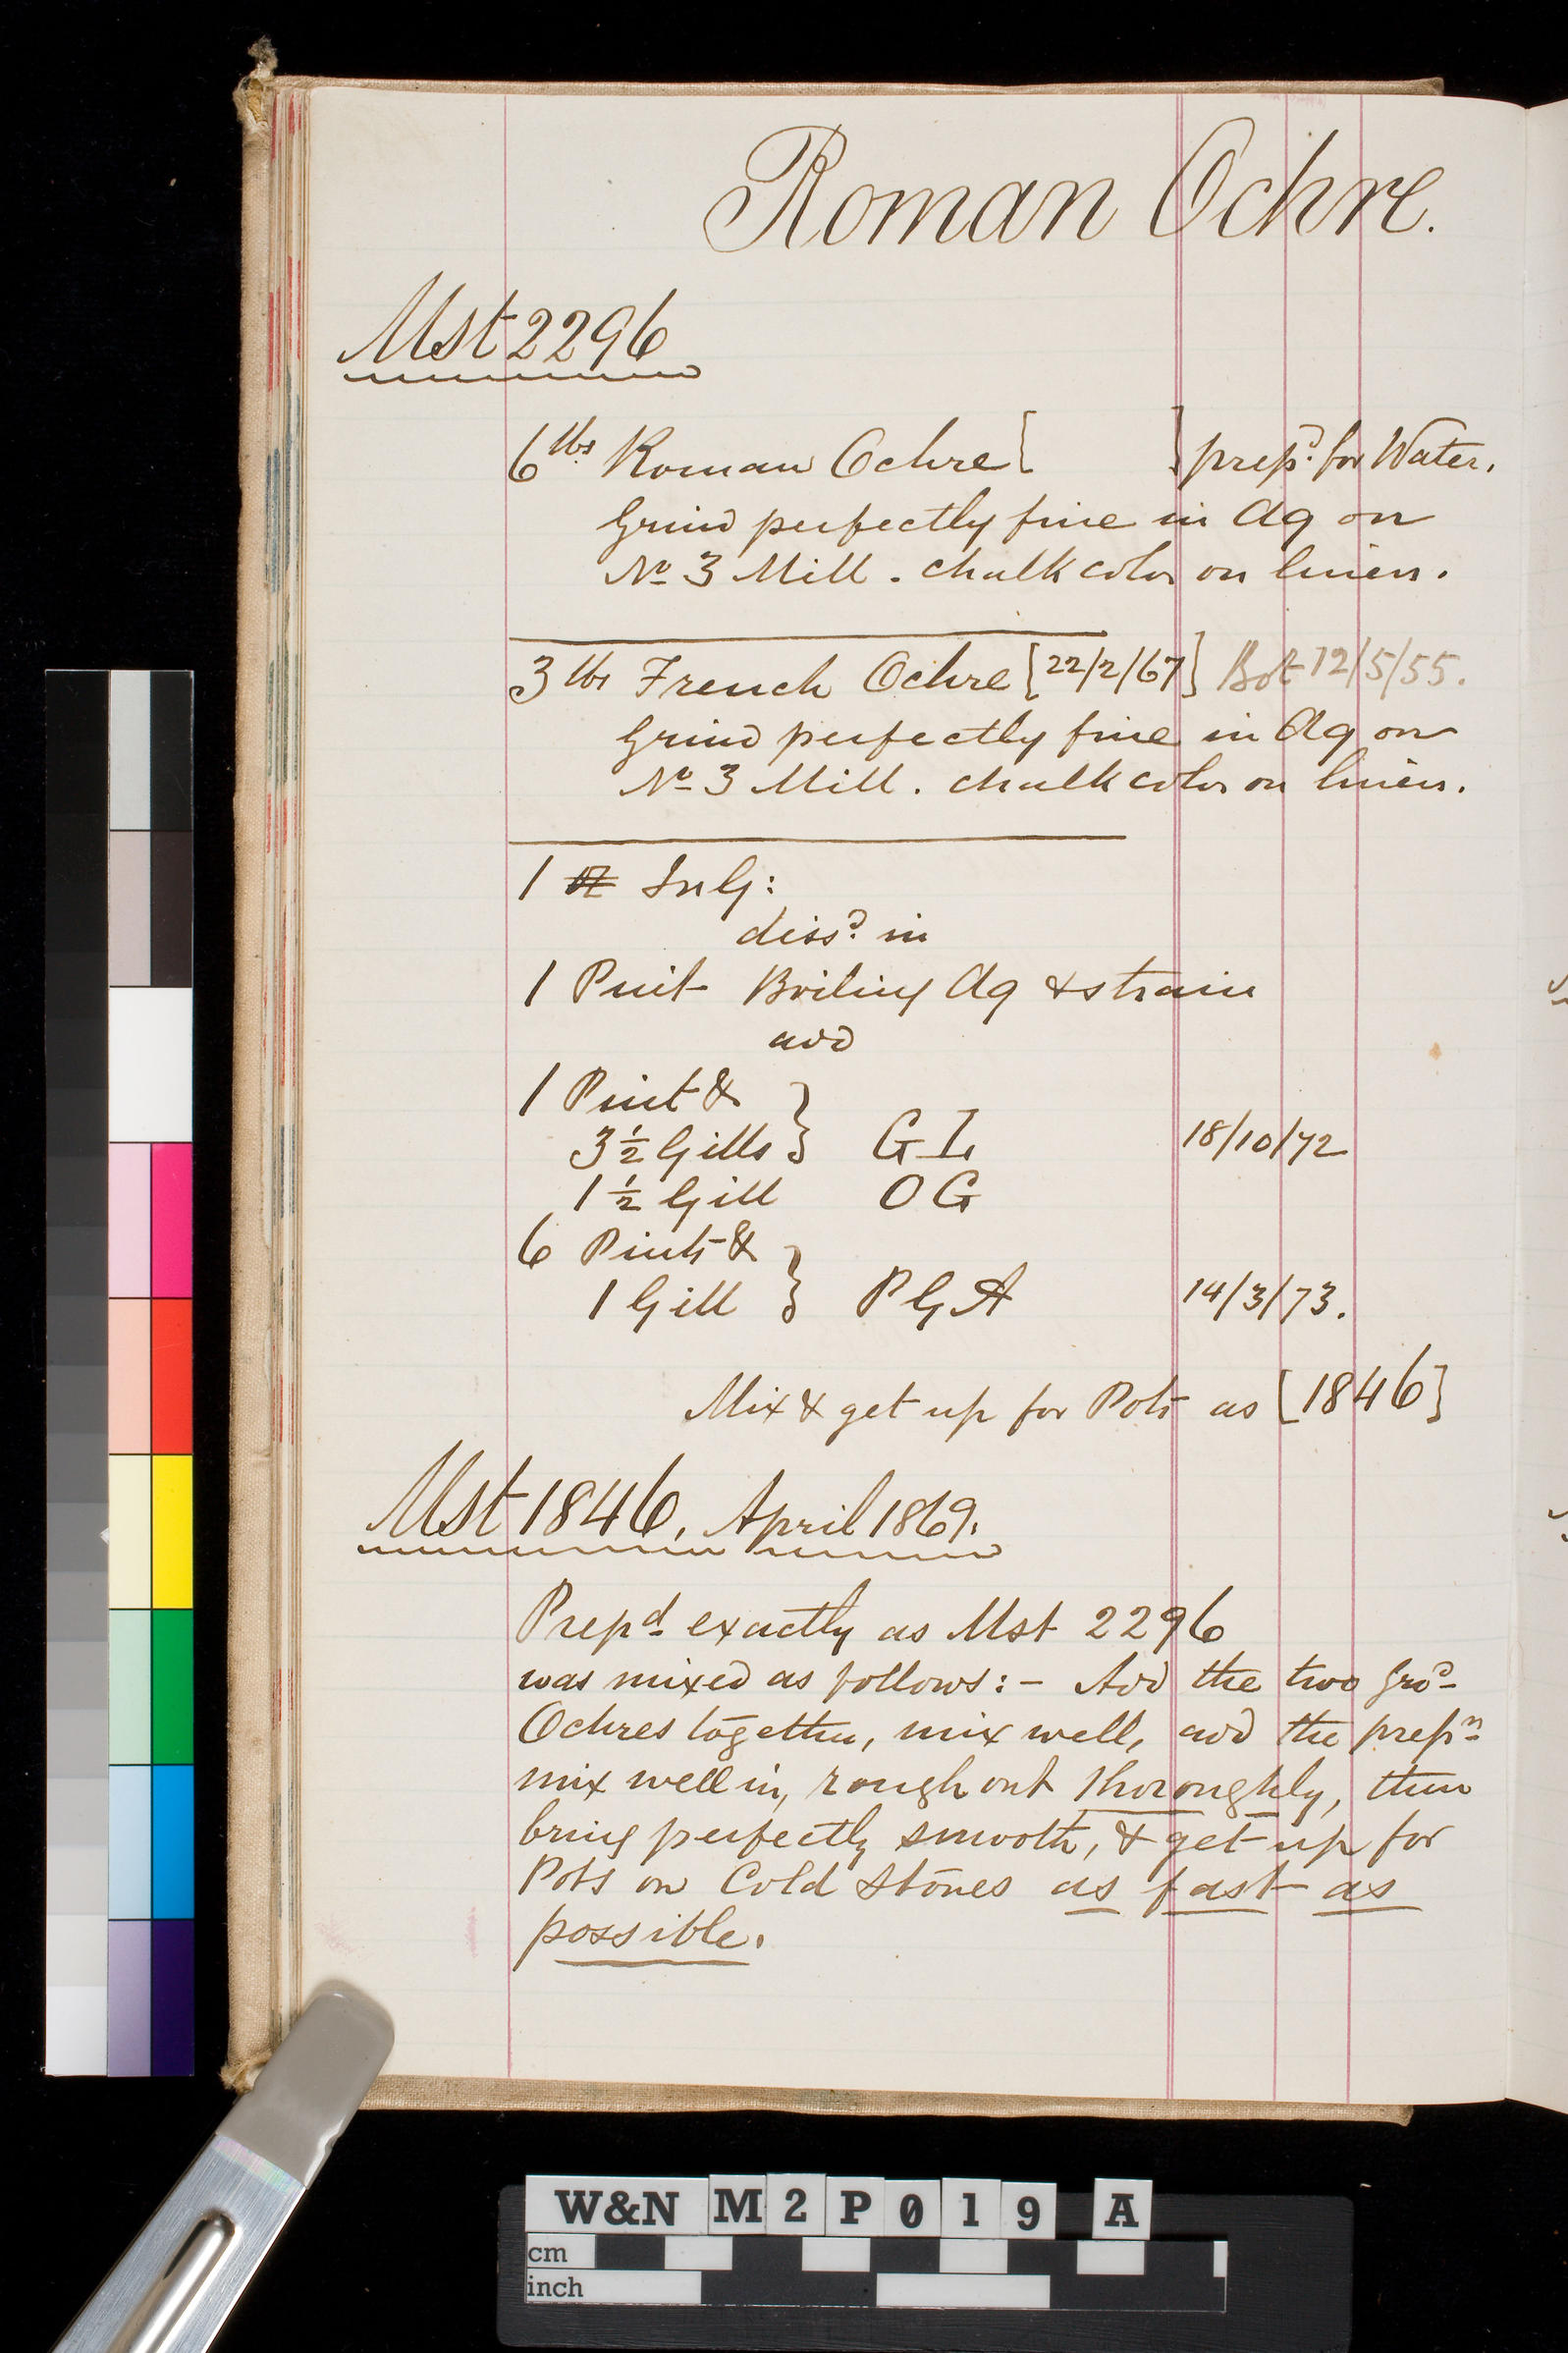 Roman Ochre.
Mst 2296
6 lbs Roman Ochre [ ] prepd. for Water.
Grind perfectly fine in Aq on
No 3 Mill. chalk color on linen.
3 lbs French Ochre [22/2/67] Bot 12/5/55.
Grind perfectly fine in Aq on
No 3 Mill. chalk color on linen.
1 SuG:
dissd. in
1 Pint Boiling Aq & strain
add
1 Pint &
3½ Gills } GL 18/10/72
1½ Gill OG
6 Pints &
1 Gill } PGA 14/3/73.
Mix & get up for Pots as [1846]
Mst 1846. April 1869.
Prepd exactly as Mst 2296
was mixed as follows:- Add the two Grd
Ochres together, mix well, add the prepn
mix well in, rough out thoroughly, then
bring perfectly smooth, & get up for
Pots on Cold Stones as fast as
possible.
W&N M2P019 A
cm
inch